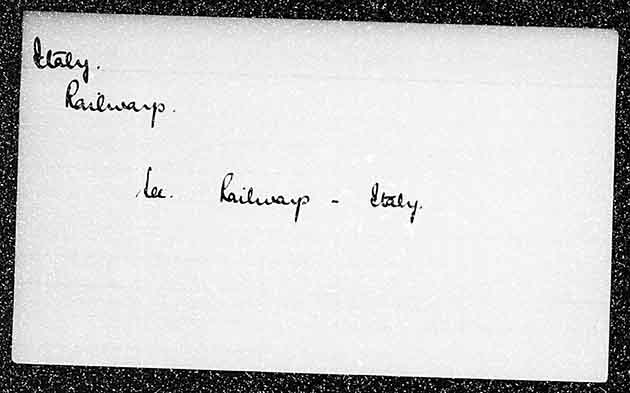 Italy.
Railways.
See. Railways - Italy.